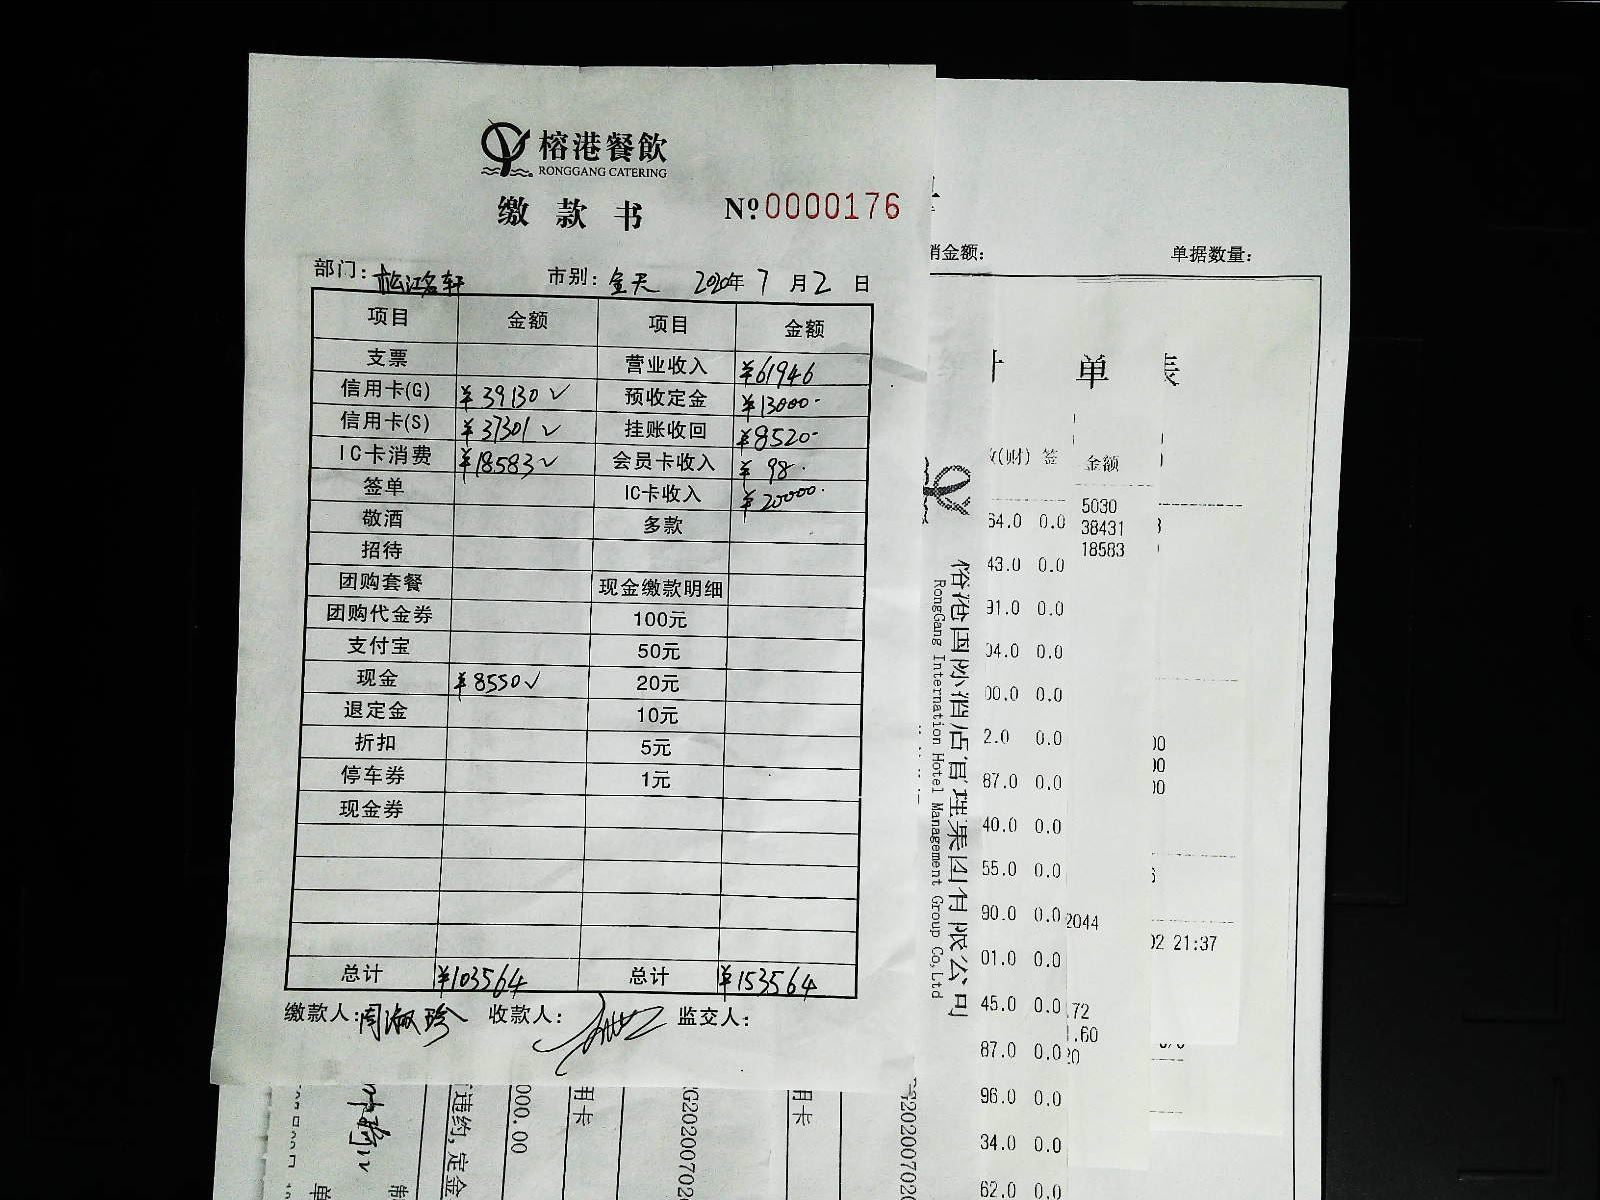 榕港餐飲
RONGGANG CATERING
缴款书 Nº:0000176
部门: 松江名轩 市别: 全天 2020年7月2日
项目 金额 项目 金额
支票 营业收入 ¥61946
信用卡(G) ¥39130✓ 预收定金 ¥13000.
信用卡(S) ¥37301✓ 挂账收回 ¥8520-
IC卡消费 ¥18583✓ 会员卡收入 ¥98.
签单 IC卡收入 ¥20000.
敬酒 多款
招待
团购套餐 现金缴款明细
团购代金券 100元
支付宝 50元
现金 ¥8550✓ 20元
退定金 10元
折扣 5元
停车券 1元
现金券
总计 ¥103564 总计 ¥153564
缴款人: 周淑珍 收款人: 监交人:
销金额: 单据数量:
单 表
(财) 签 金额
5030
38431
18583
64.0 0.0
43.0 0.0
91.0 0.0
04.0 0.0
00.0 0.0
2.0 0.0
87.0 0.0
40.0 0.0
55.0 0.0
90.0 0.0
01.0 0.0
45.0 0.0
87.0 0.0
96.0 0.0
34.0 0.0
62.0 0.0
2044
02 21:37
.72
.60
20
榕港国际酒店管理集团有限公司
RongGang International Hotel Management Group Co,Ltd
违约,定金
000.00
用卡
G20200702
用卡
20200702
单